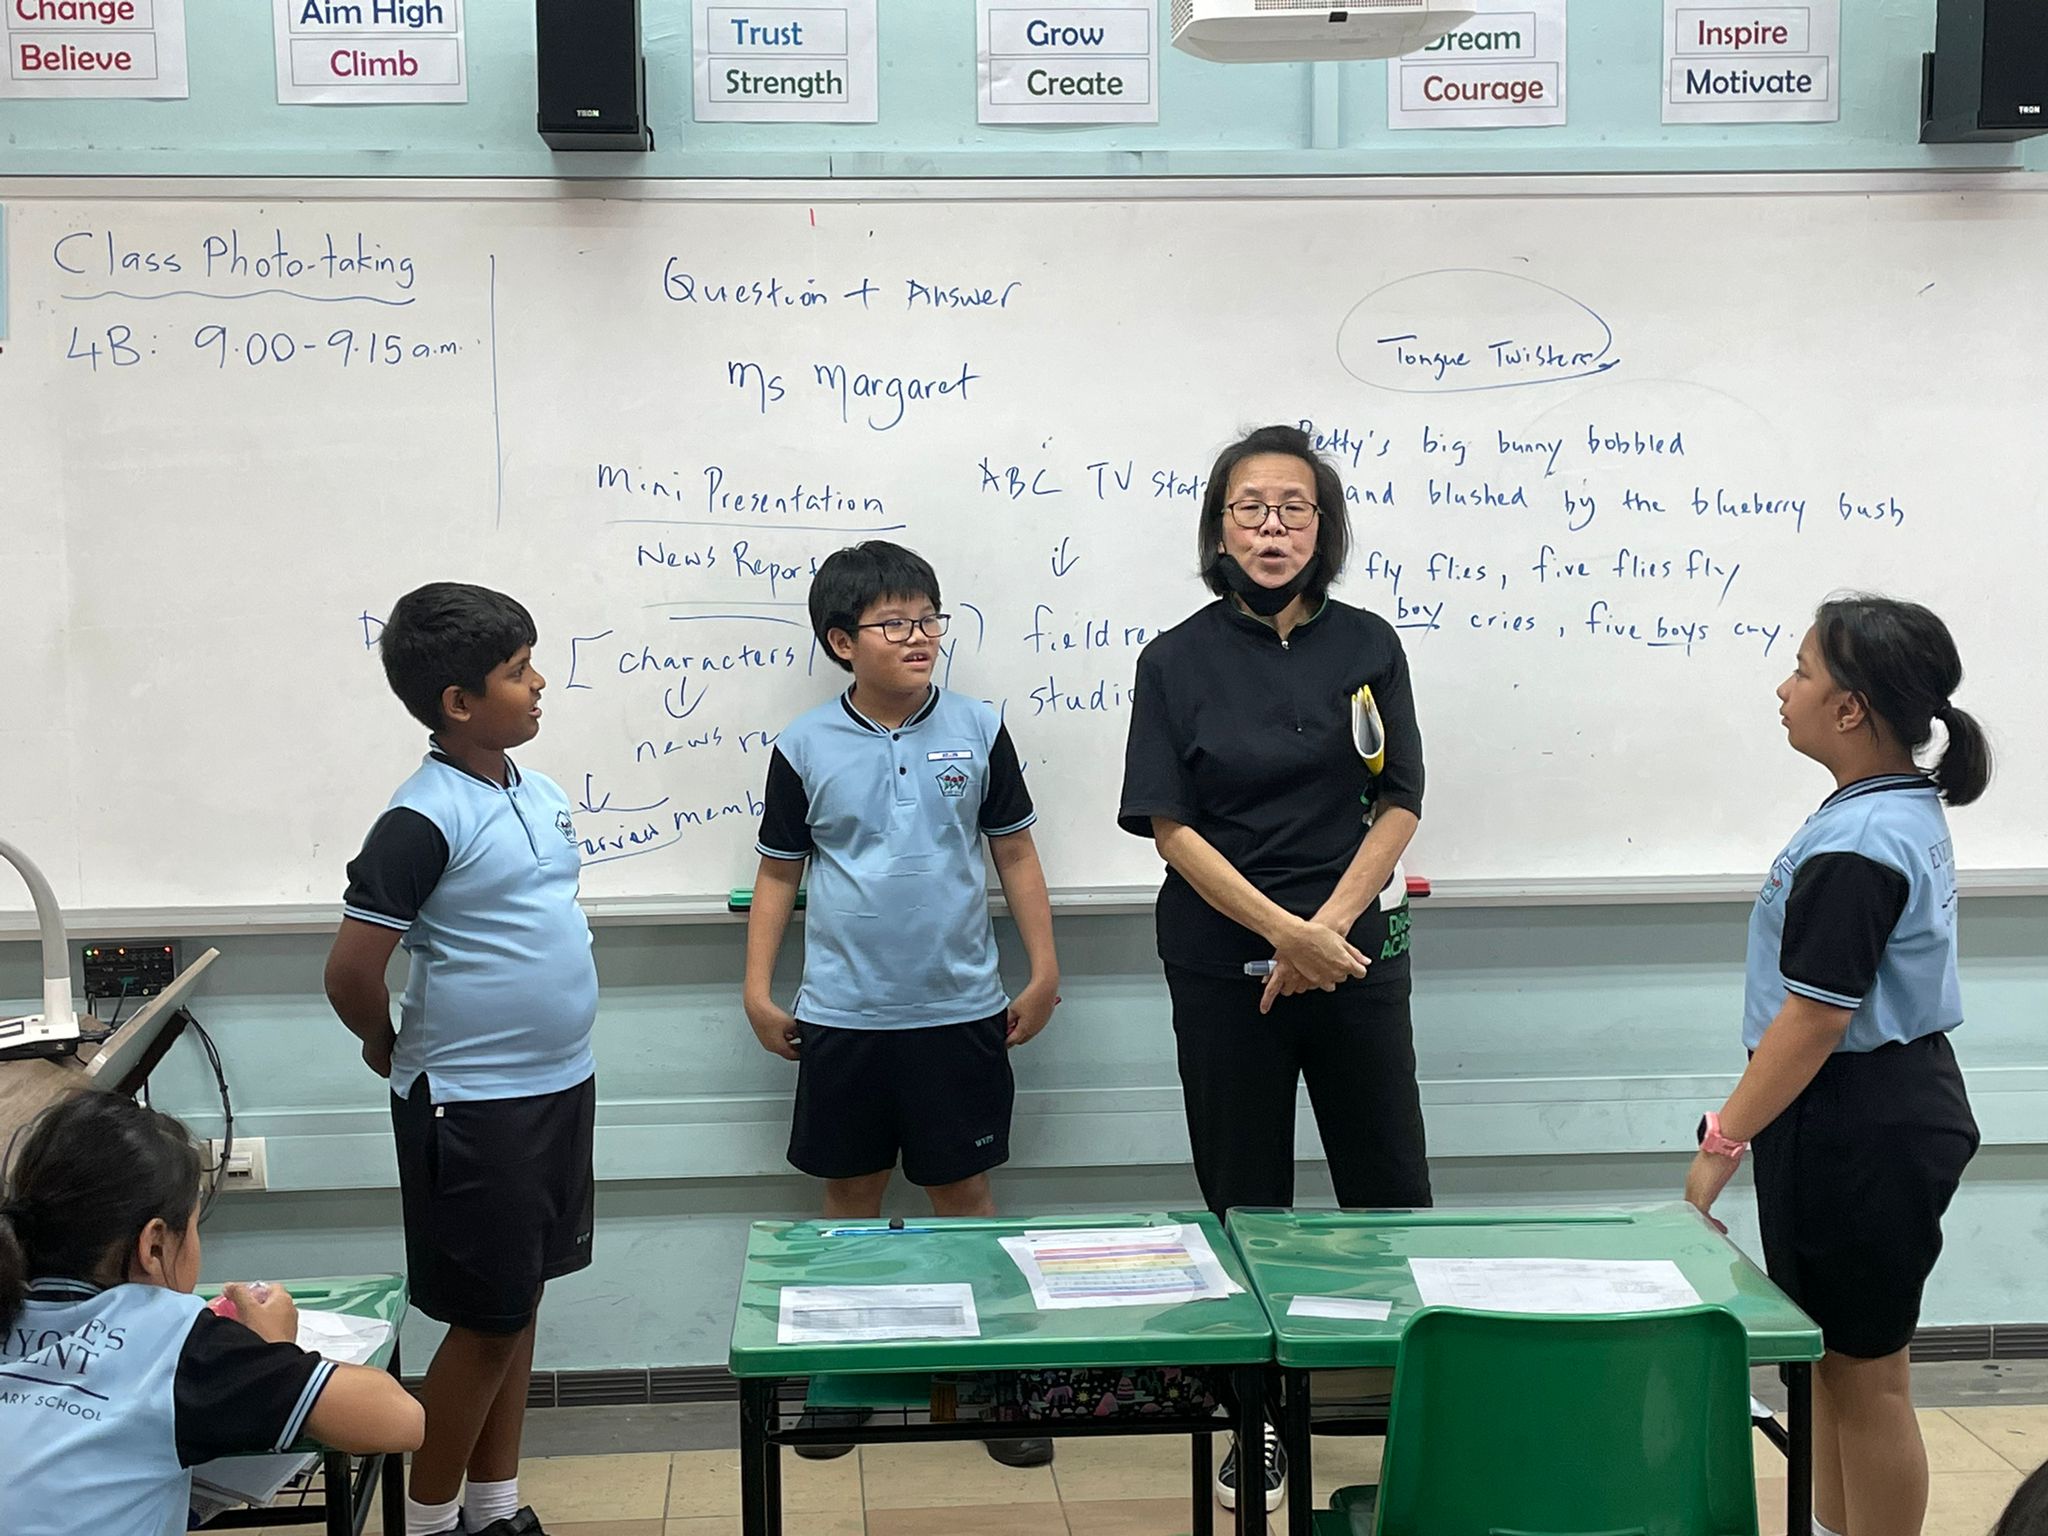 Change
Believe
Aim High
Climb
Trust
Strength
Grow
Create
Dream
Courage
Inspire
Motivate
Class Photo-taking
4B: 9.00-9.15 a.m.
Question + Answer
Ms Margaret
Mini Presentation
News Report
[characters/
news
memb
ABC TV
field
studio
Tongue Twisters
Betty's big bunny bobbled
and blushed by the blueberry bush
fly flies, five flies fly
boy cries, five boys cry.
WVPS
ARY SCHOOL